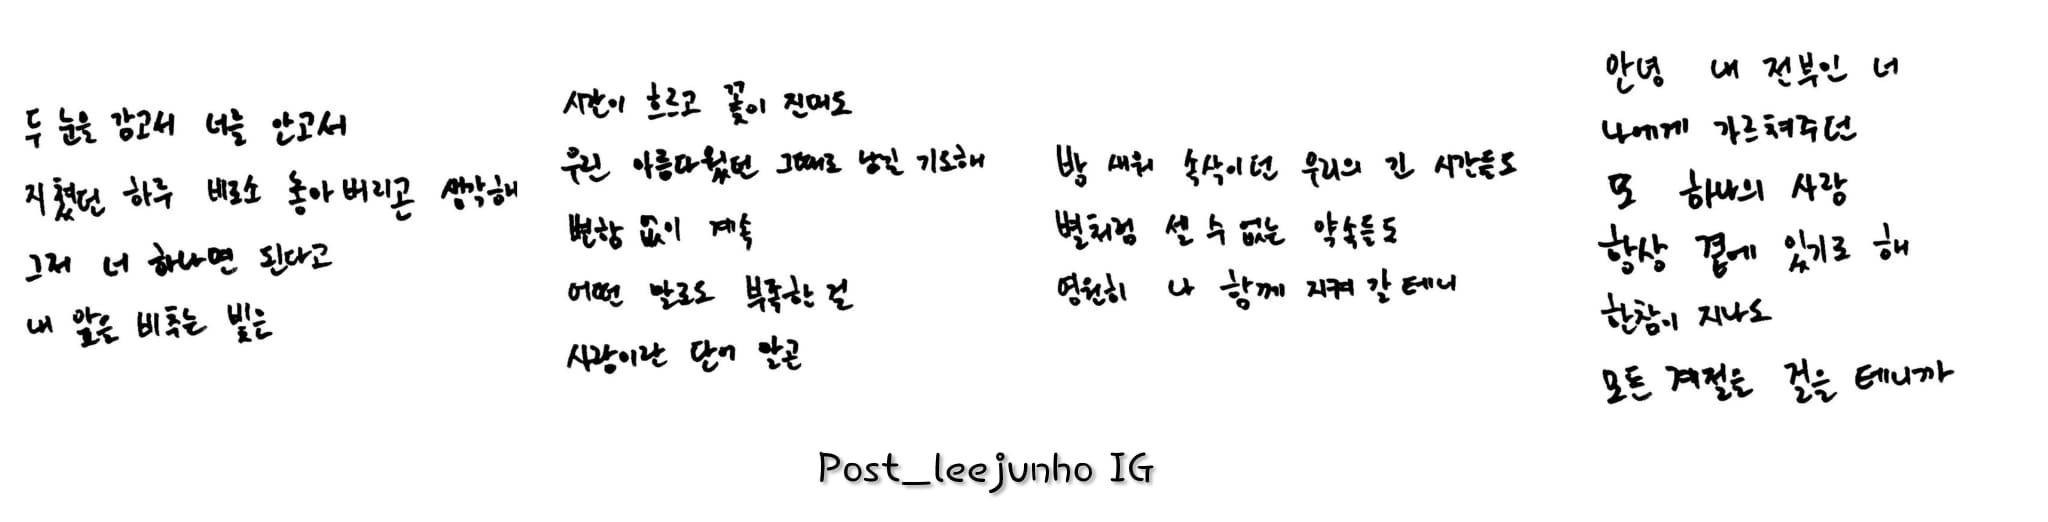 두 눈을 감고서 너를 안고서
지쳤던 하루 비로소 놓아버리곤 생각해
그저 너 하나면 된다고
내 앞을 비추는 빛은
시간이 흐르고 꽃이 진대도
우린 아름다웠던 그때로 남길 기도해
변함 없이 계속
어떤 말로도 부족한 걸
사랑이란 단어 말곤
밤 새워 속삭이던 우리의 긴 시간들도
별처럼 셀 수 없는 약속들도
영원히 나 함께 지켜 갈 테니
안녕 내 전부인 너
나에게 가르쳐주던
또 하나의 사랑
항상 곁에 있기로 해
한참이 지나도
모든 계절을 걸을 테니까
Post_leejunho IG